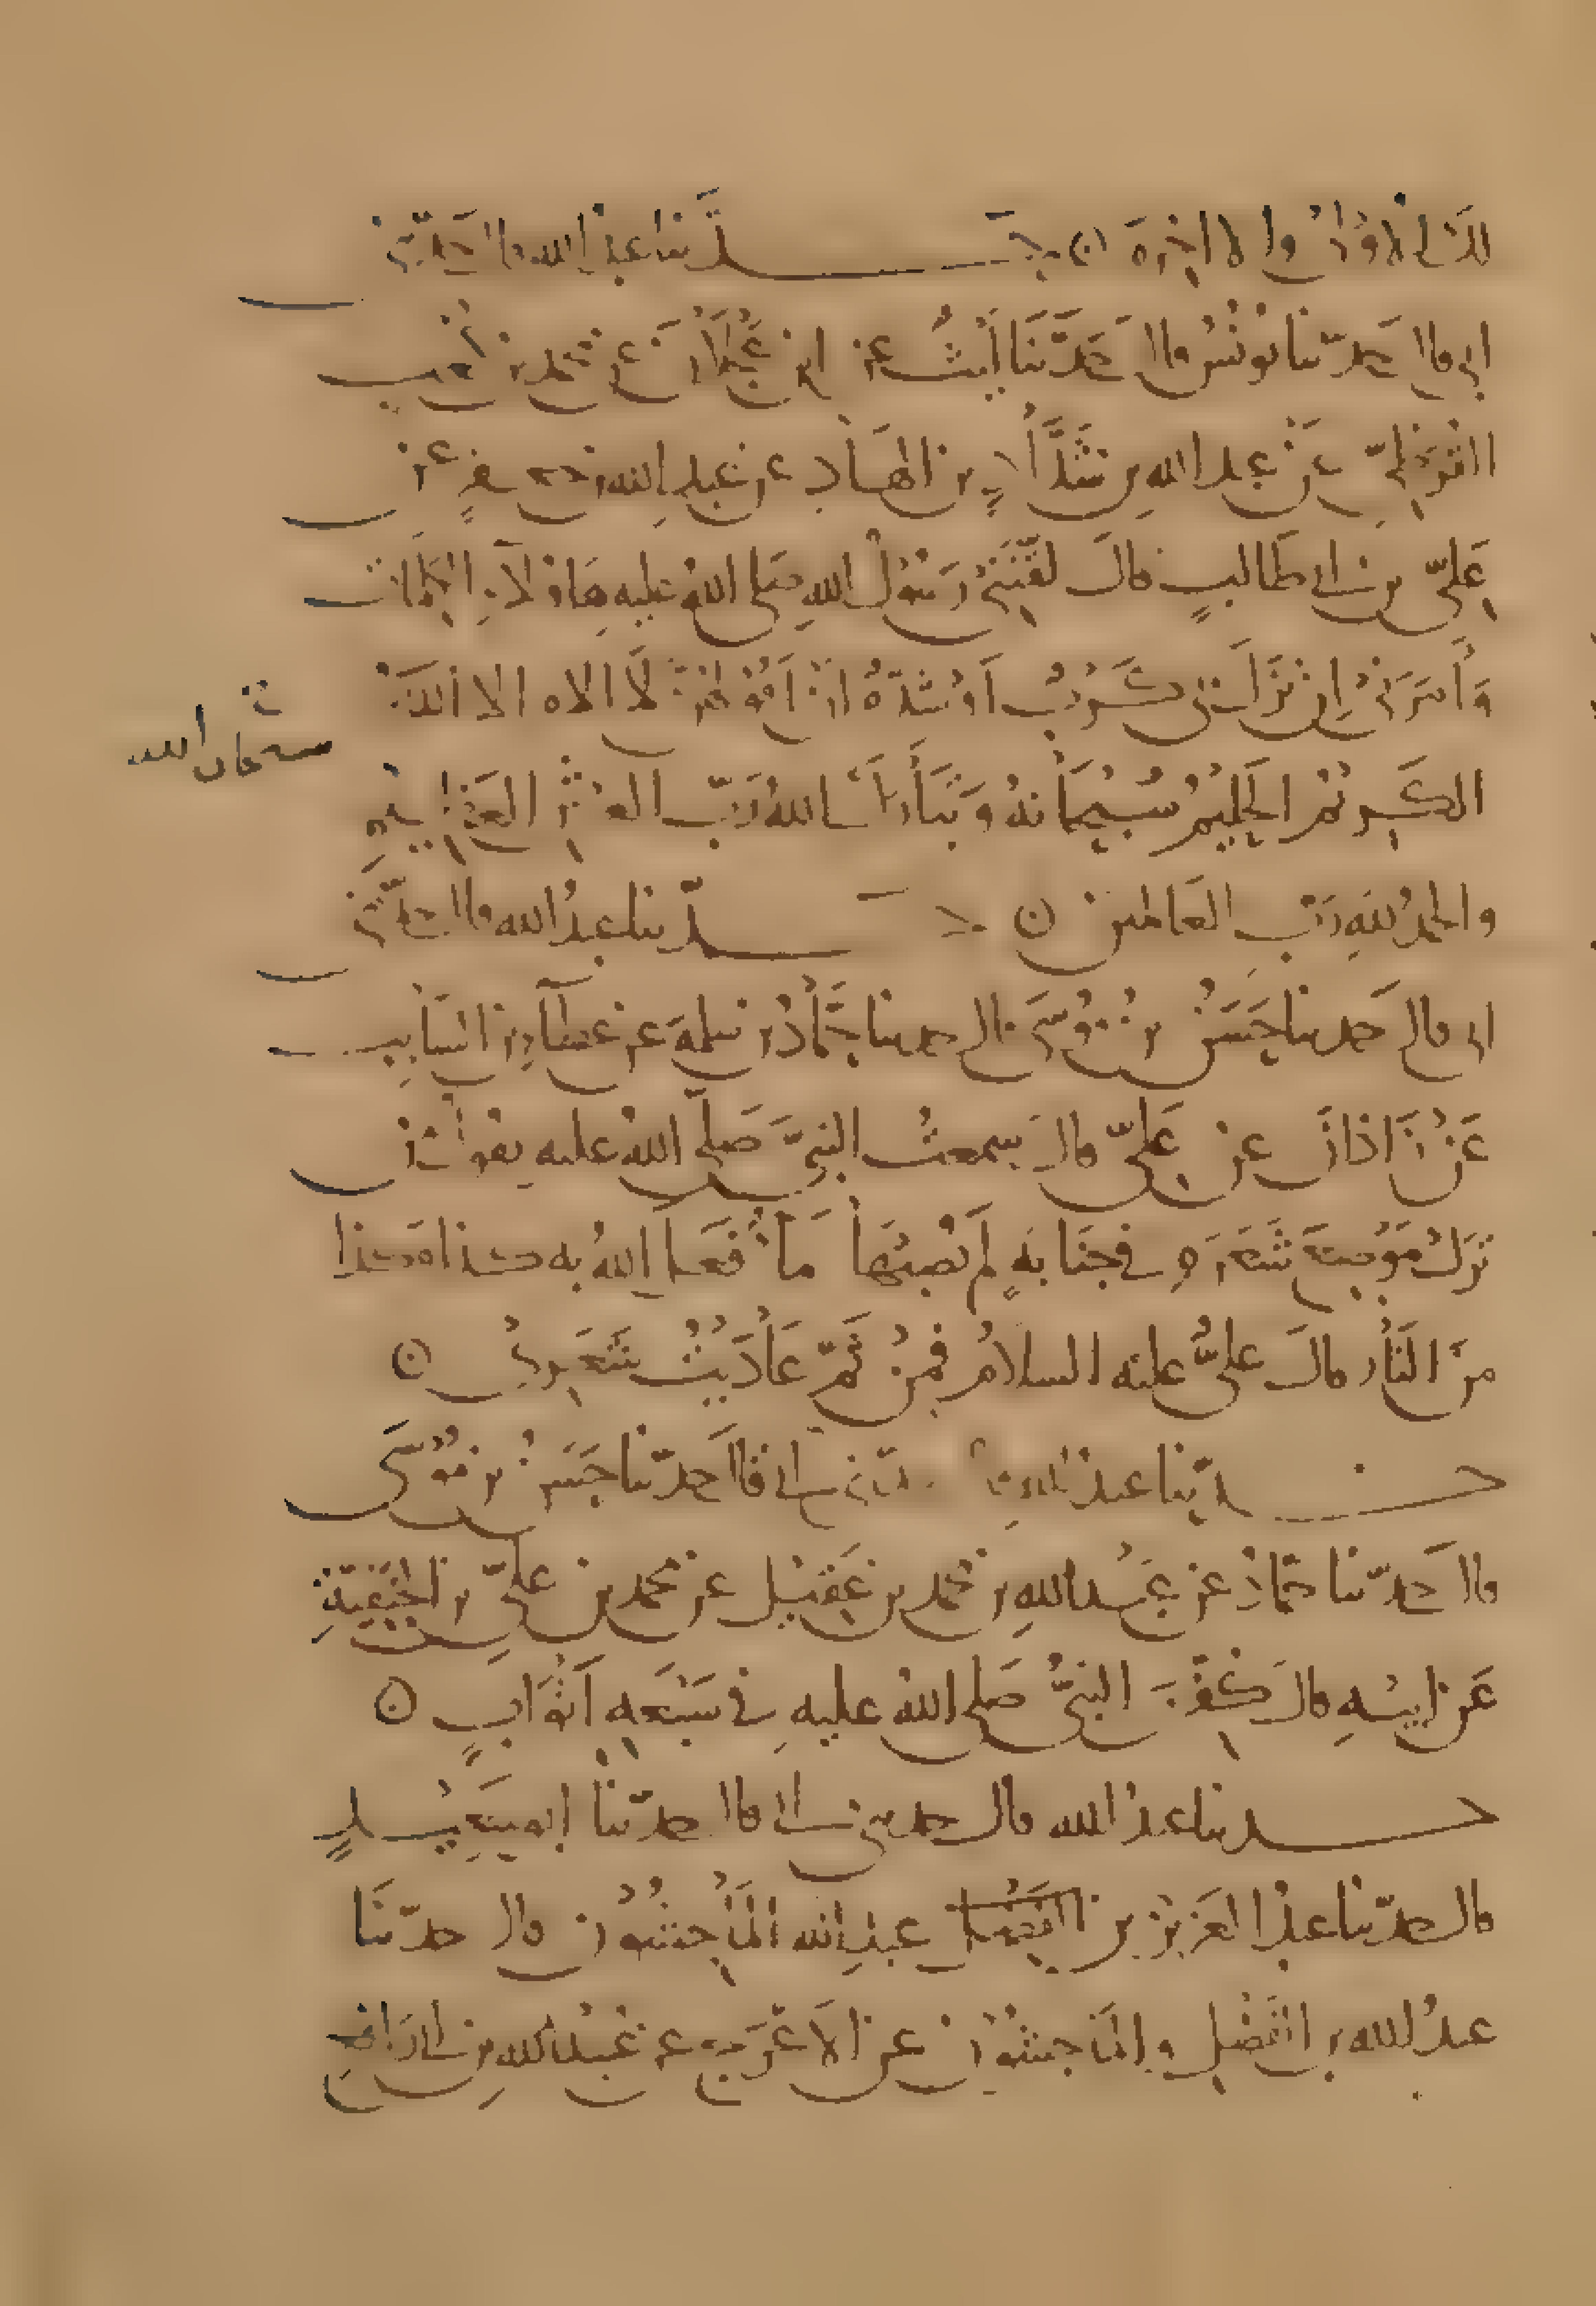 لك في الاولى والاخرة ن حدثنا عبد الله قال حدثني
ابي قال حدّثنا يونس قال حَدَّثنَا لَيثٌ عن ابن عَجْلان عن محمد بن كعب
القُرَظيّ عَن عبد اللهِ بن شَدَّادِ بن الهَادِ عن عبد اللهِ بن جعفرٍ عن
عَليّ بن ابي طالبٍ قالَ لقَّنَني رَسُولُ اللهِ صَلى اللهُ عليهِ هاولاءِ الكلمات
وَأَمَرَني اِن نَزَلَ بي كَرْبٌ اَوْ شدّةٌ ان اَقُولهُنَّ لَا الاه الا اللهُ
الكَرِيْمُ الحَلِيْمُ سُبْحَانهُ وَتَبَارَكَ اللهُ رَبّ العرْشِ العَظِيمِ
سبحان الله
والحمدُ للهِ رَبّ العَالمين ن حدّثنا عبدُ الله قال حدّثني
ابي قال حَدثنا حَسَنُ بن مُوْسَى قال حدثنا حَمَّادُ بن سلمةَ عن عطَاءِ بن السَايِبِ
عَنْ زَاذانَ عن عَليّ قالَ سمعتُ النبيَّ صَلى اللهُ عليه يقول من
تَرَكَ مَوْضِعَ شَعَرَةٍ في جنَابَةٍ لم يُصِبْهَا مَاءٌ فَعَلَ اللهُ به كذا وكذا
منَ النَارِ قالَ عليٌّ عليه السلامُ فمِنْ ثَمّ عَادَيْتُ شَعَرِي ن
حدّثنا عبدُ الله قال حدّثني ابي قال حَدّثنا حَسَنُ بن مُوْسَى
قال حَدّثنا حَمّادٌ عن عَبْد اللهِ بن محمد بن عَقِيْل عن محمد بن عليّ بن الحَنَفِيّةِ
عَن ابيْهِ قالَ كُفِّنَ النبيُّ صَلى اللهُ عليهِ في سَبْعَهِ اَثْوَابٍ ن
حدثنا عبدُ الله قال حدثني ابي قال حدّثنا ابو سَعِيْدٍ
قال حدّثنا عبدُ العَزيْز بن الفَضْل عبدِ الله المَاجِشُوْن قال حدّثنَا
عبدُ الله بن الفَضْلِ والمَاجِشُوْن عن الاَعْرَجِ عن عُبَيْد اللهِ بن ابي رَافِعٍ